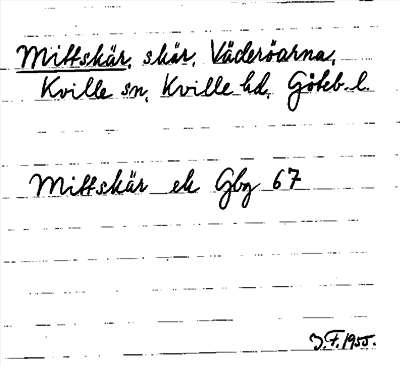 Mittskär, skär, Väderöarna,
Kville sn, Kville hd, Göteb. l.
Mittskär ek Gbg 67
J.F. 1955.